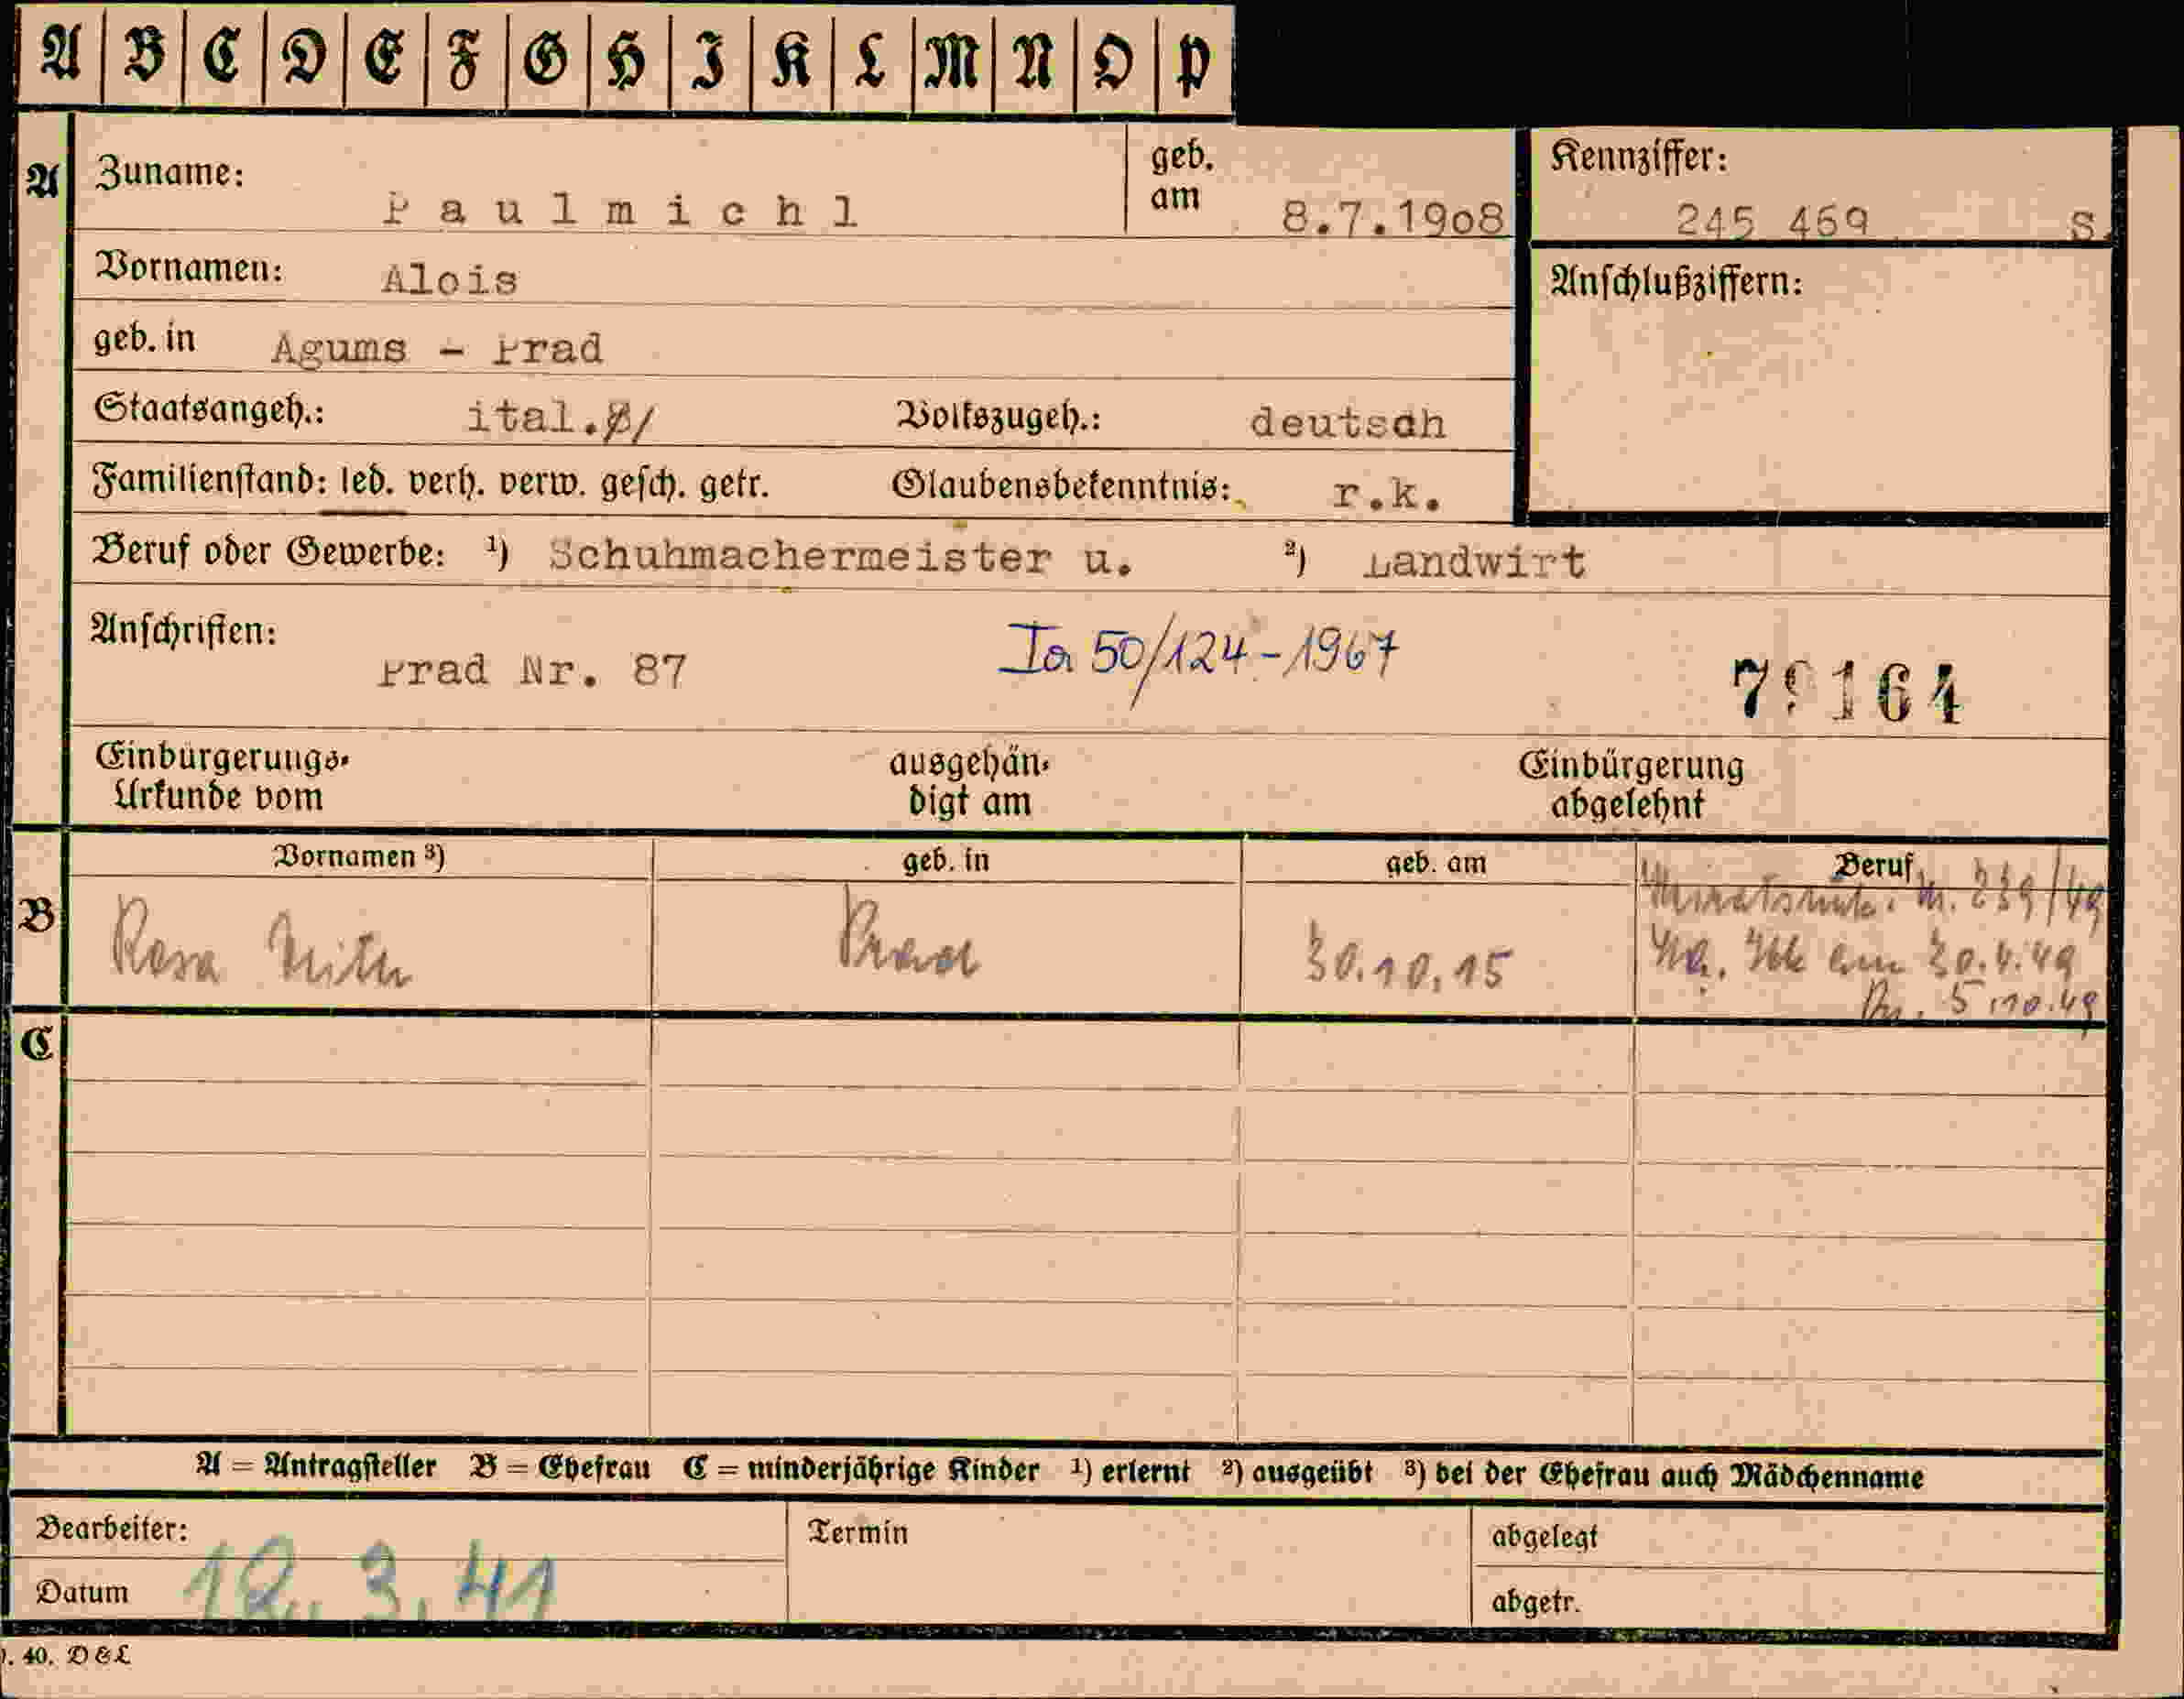 A B C D E F G H I K L M N O P
A Zuname: Paulmichl geb. am 8.7.1908 Kennziffer: 245 469 S.
Vornamen: Alois Anschlußziffern:
geb. in Agums - Prad
Staatsangeh.: ital. Volkszugeh.: deutsch
Familienstand: led. verh. verw. gesch. getr. Glaubensbekenntnis: r.k.
Beruf oder Gewerbe: ¹) Schuhmachermeister u. ²) Landwirt
Anschriften: Prad Nr. 87 Ia 50/124-1967 164
Einbürgerungs-Urkunde vom ausgehändigt am Einbürgerung abgelehnt
Vornamen ³) geb. in geb. am Beruf
239/49
B Rosa Prad 30.10.15 am 30.4.49
5.10.49
C
A = Antragsteller B = Ehefrau C = minderjährige Kinder ¹) erlernt ²) ausgeübt ³) bei der Ehefrau auch Mädchenname
Bearbeiter: Termin abgelegt
Datum 3.41 abgetr.
40. D&L